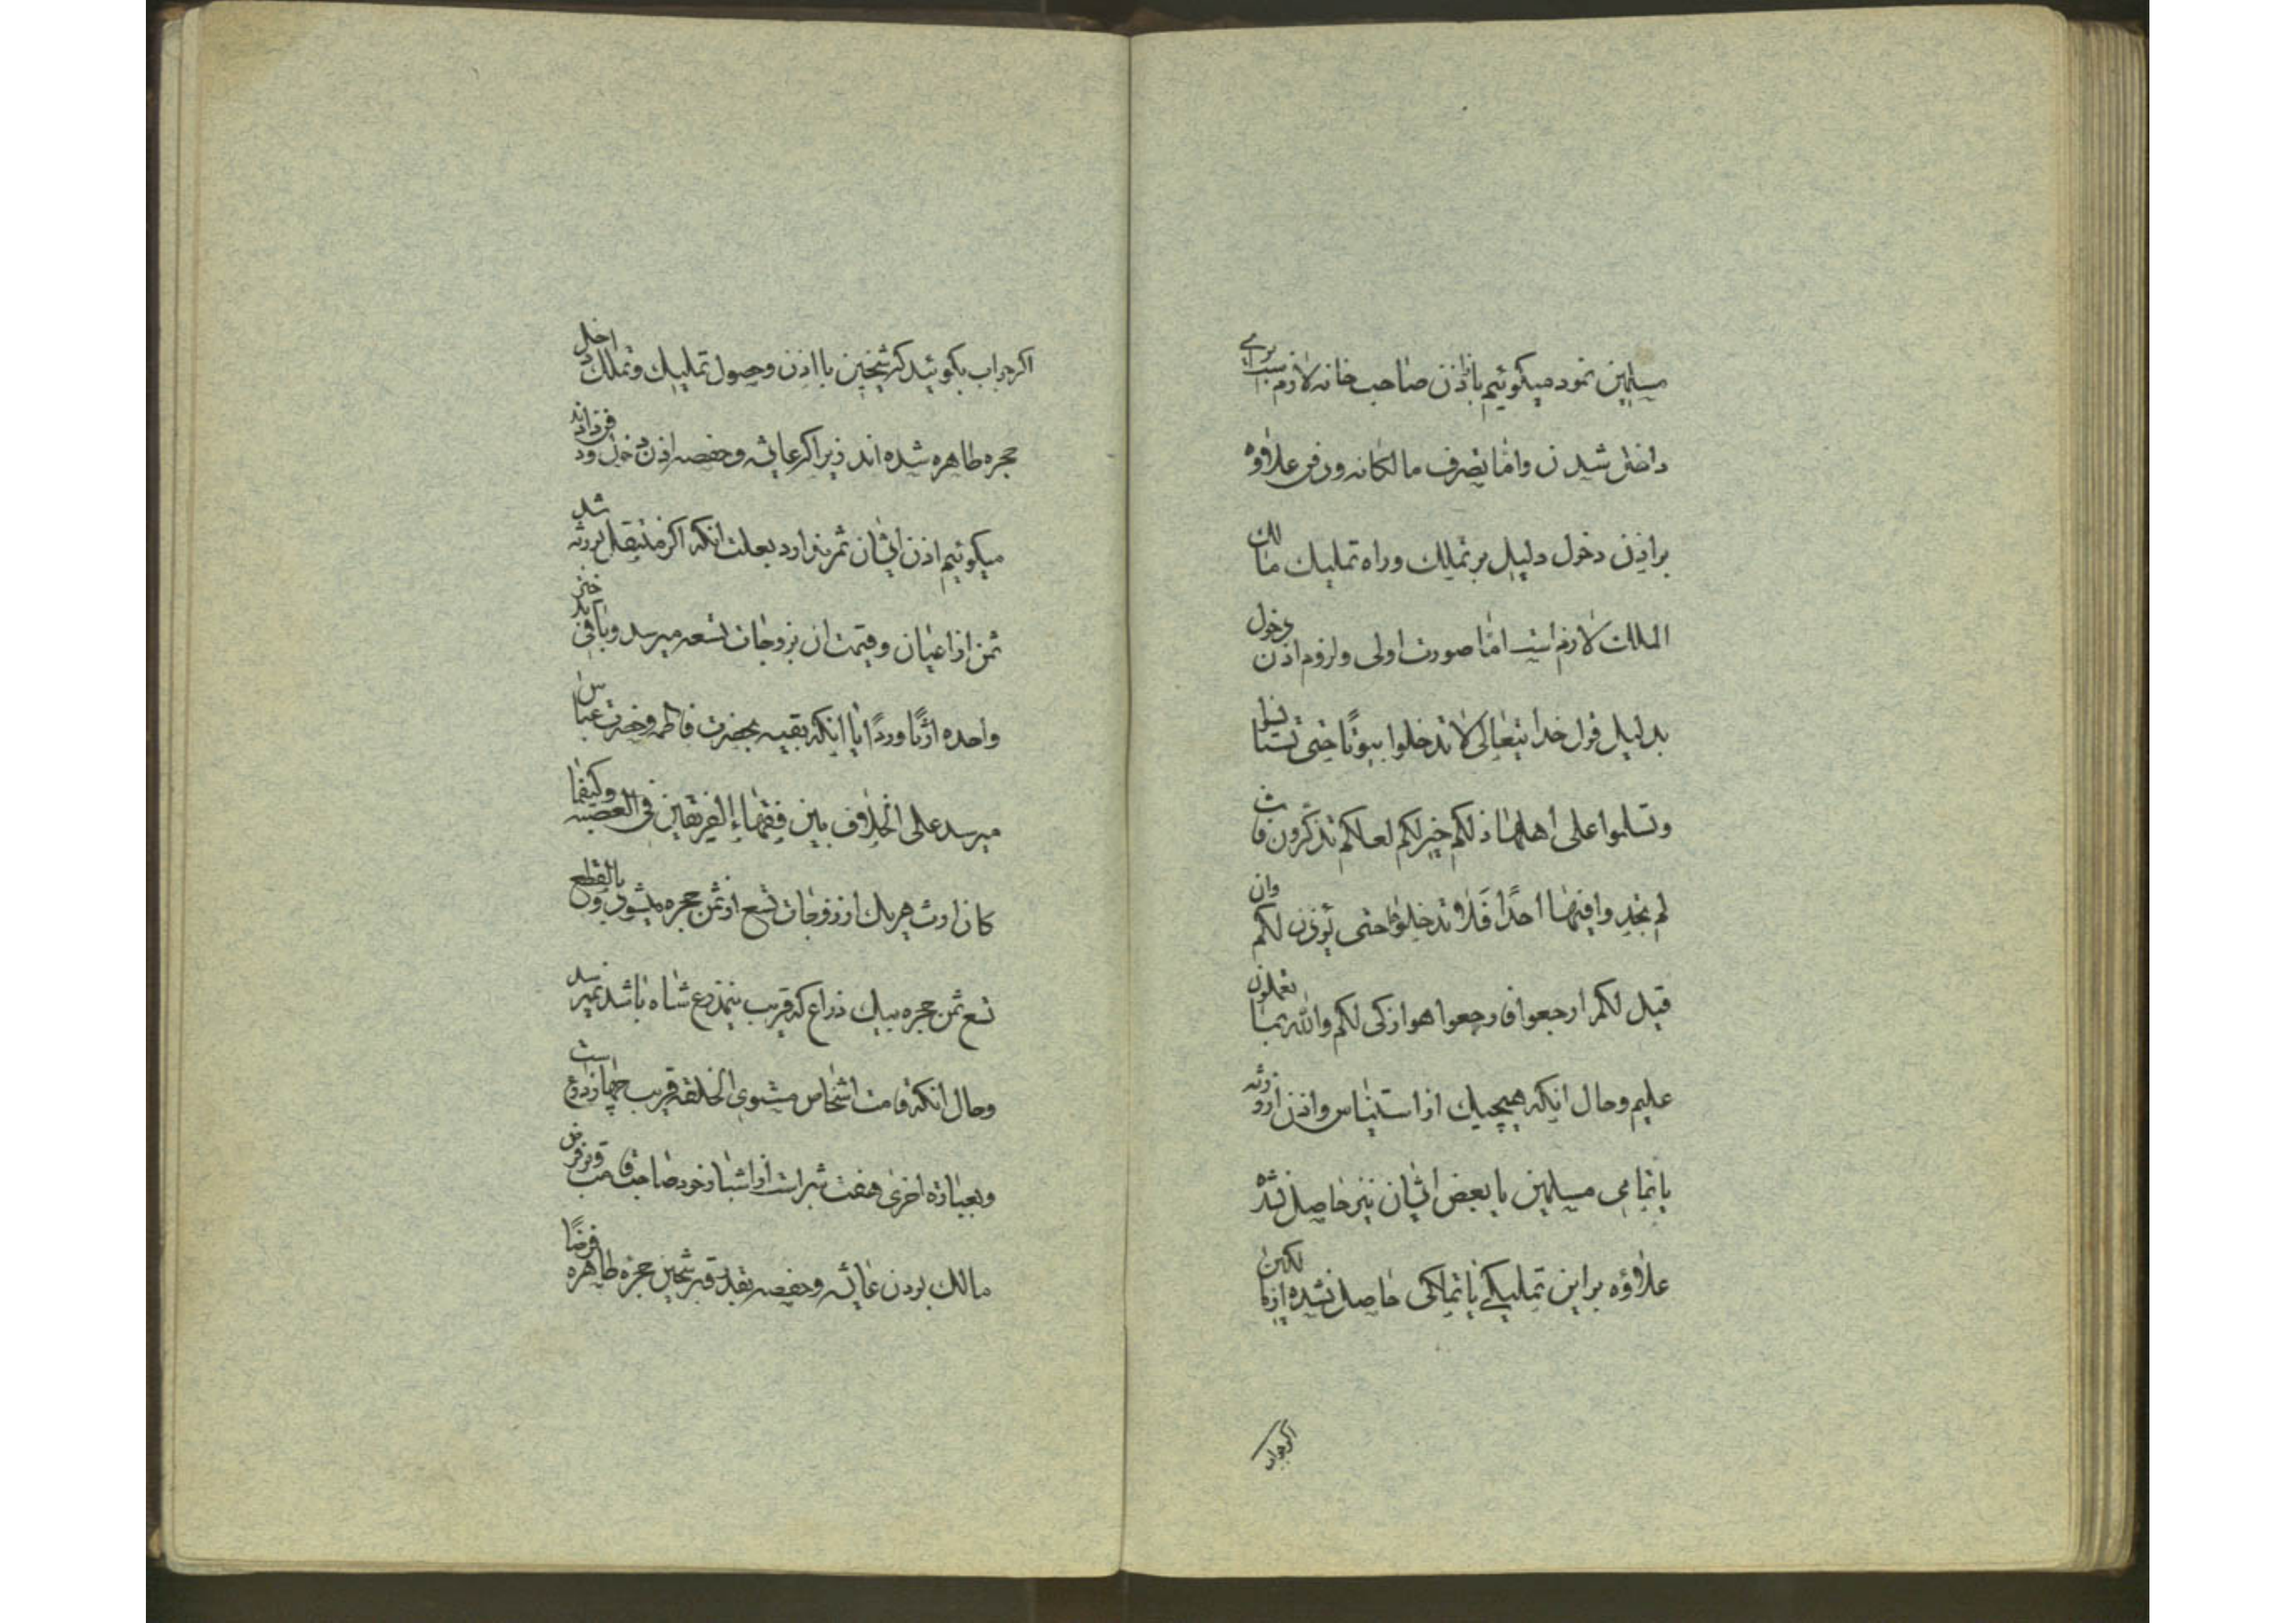 مسلمین نمود میگوئیم باذن صاحب خانه لازم است برای
داخل شدن واما تصرف مالکانه ودفن علاوه
بر اذن دخول دلیل بر تملک وراه تملیک مالک
الملک لازم است اما صورت اولی ولزوم اذن دخول
بدلیل قول خدا یتعالی لا تدخلوا بیوتا حتی تستانسوا
وتسلموا علی اهلها ذلکم خیر لکم لعلکم تذکرون فان
لم تجدوا فیها احدا فلا تدخلوها حتی یؤذن لکم وان
قیل لکم ارجعوا فارجعوا هو ازکی لکم والله بما تعملون
علیم وحال انیکه هیچیک از استیناس واذن از ورثه
یا تمامی مسلمین یا بعض ایشان نیز حاصل نشده
علاوه بر این تملیکی یا تملکی حاصل نشده لکن
اکر جواب
اکر جواب بکوئید که شیخین با اذن وحصول تملیک وتملک داخل
حجره طاهره شده اند زیرا که عایشه وحفصه اذن دخول ودفن داد
میکوئیم اذن ایشان ثمر ندارد بعلت انکه اکر منتقل بورثه شد
ثمن از اعیان وقیمت ان بزوجات تسعه میرسد وباقی بدختر
واحده ارثا وردا یا انیکه بقیه بحضرت فاطمه وحضرت عباس
میرسد علی اختلاف بین فقهاء الفریقین فی العصبه وکیفما
کان ارث هریک از زوجات تسع از ثمن حجره میشود وبالقطع
تسع ثمن حجره بیک ذراع که قریب بنیم ذرع شاه باشد نمیرسد
وحال انکه قامت اشخاص مستوی الخلقه قریب چهار ذرع است
وبعبارة اخری هفت شبر است از اشبار خود صاحب قامت وبر فرض
مالک بودن عایشه وحفصه بقدر قبر شیخین حجره طاهره فرضا